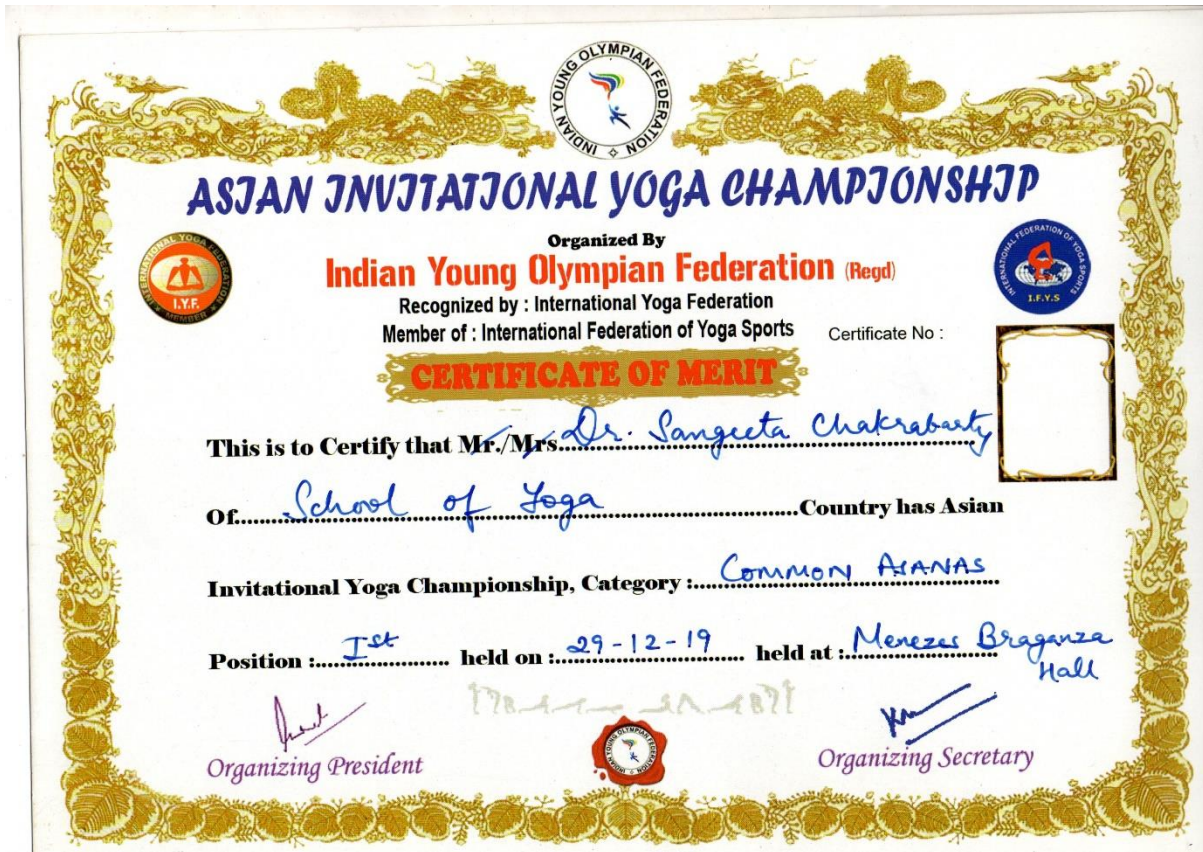 INDIAN YOUNG OLYMPIAN FEDERATION
ASIAN INVITATIONAL YOGA CHAMPIONSHIP
Organized By
Indian Young Olympian Federation (Regd)
Recognized by : International Yoga Federation
Member of : International Federation of Yoga Sports
Certificate No :
INTERNATIONAL YOGA FEDERATION
I.Y.F.
MEMBER
INTERNATIONAL FEDERATION OF YOGA SPORTS
I.F.Y.S
CERTIFICATE OF MERIT
This is to Certify that Mr./Mrs. Dr. Sangeeta Chakrabarty
Of School of Yoga Country has Asian
Invitational Yoga Championship, Category : COMMON ASANAS
Position : Ist held on : 29-12-19 held at : Menezes Braganza
Hall
Organizing President
INDIAN YOUNG OLYMPIAN FEDERATION
Organizing Secretary